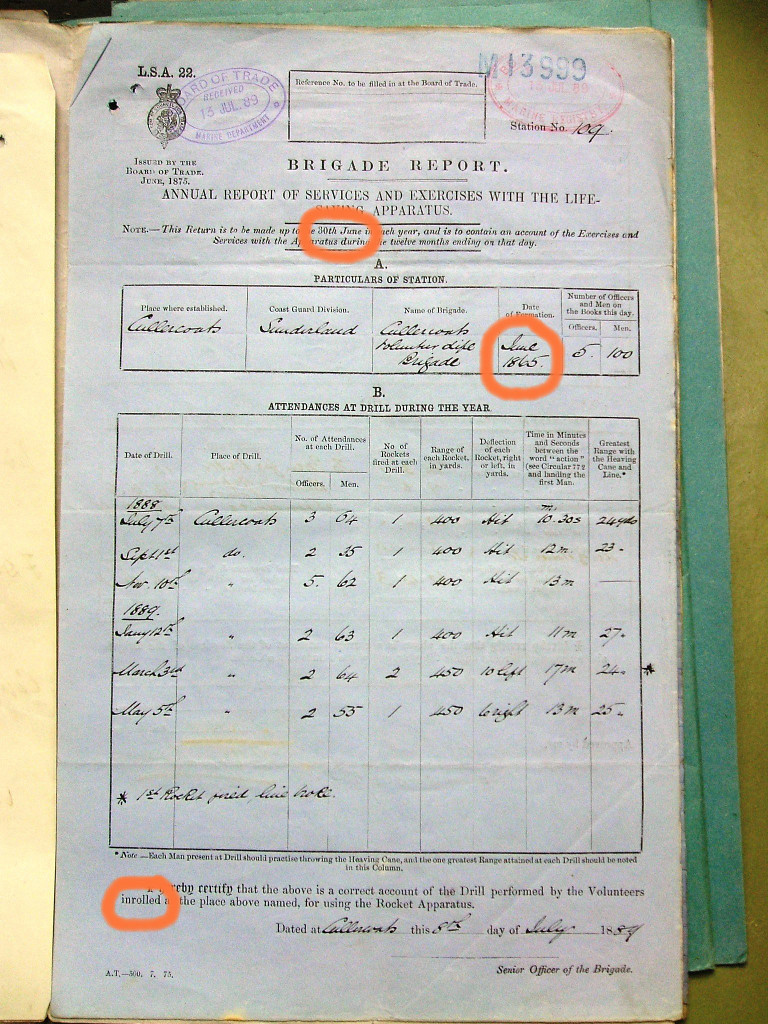 L.S.A. 22.
BOARD OF TRADE
RECEIVED
13 JUL. 89
MARINE DEPARTMENT
Reference No. to be filled in at the Board of Trade.
M13999
13 JUL 89
Station No. 109.
ISSUED BY THE
BOARD OF TRADE.
JUNE, 1875.
BRIGADE REPORT.
ANNUAL REPORT OF SERVICES AND EXERCISES WITH THE LIFE-
SAVING APPARATUS.
NOTE.—This Return is to be made up to the 30th June in each year, and is to contain an account of the Exercises and
Services with the Apparatus during the twelve months ending on that day.
A.
PARTICULARS OF STATION.
Place where established. Coast Guard Division. Name of Brigade. Date of Formation. Number of Officers and Men on the Books this day.
Officers. Men.
Cullercoats Sunderland Cullercoats Volunteer Life Brigade June 1865. 5. 100
B.
ATTENDANCES AT DRILL DURING THE YEAR
Date of Drill. Place of Drill. No. of Attendances at each Drill. No of Rockets fired at each Drill. Range of each Rocket, in yards. Deflection of each Rocket, right or left, in yards. Time in Minutes and Seconds between the word "action" (see Circular 772 and landing the first Man. Greatest Range with the Heaving Cane and Line.*
Officers. Men.
1888
July 7th Cullercoats 3 64 1 400 Hit 10m. 30s 24yds
Sept 1st do. 2 35 1 400 Hit 12m 23 "
Nov. 10th " 5. 62 1 400 Hit 13m —
1889.
Jany 12th " 2 63 1 400 Hit 11m 27 "
March 3rd " 2 64 2 450 10 left 17m 24 " *
May 5th " 2 55 1 450 6 right 13m 25 "
* 1st Rocket fired line broke.
*Note.—Each Man present at Drill should practise throwing the Heaving Cane, and the one greatest Range attained at each Drill should be noted
in this Column.
I hereby certify that the above is a correct account of the Drill performed by the Volunteers
inrolled at the place above named, for using the Rocket Apparatus.
Dated at Cullercoats this 8th day of July 1889
Senior Officer of the Brigade.
A.T.—500. 7. 75.